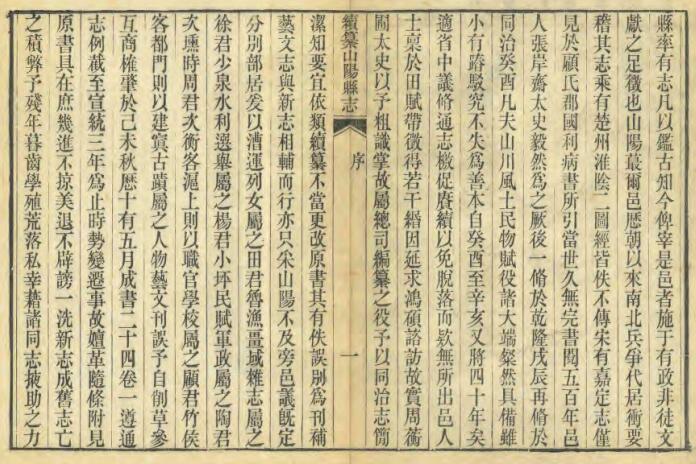 縣率有志凡以鑑古知今俾宰是邑者施于有政非徒文
獻之足徵也山陽蕞爾邑歷朝以來南北兵爭代居衝要
稽其志乘有楚州淮陰二圖經皆佚不傳宋有嘉定志僅
見於顧氏郡國利病書所引當世久無完書閱五百年邑
人張岸齋太史毅然爲之厥後一脩於乾隆戊辰再脩於
同治癸酉凡夫山川風土民物賦役諸大端粲然具備雖
小有踳駁究不失爲善本自癸酉至辛亥又將四十年矣
適省中議脩通志檄促賡續以免脫落而欵無所出邑人
士稟於田賦帶徵得若干緡因延求鴻碩諮訪故實周衡
圃太史以予粗識掌故屬總司編纂之役予以同治志簡
續纂山陽縣志
序
一
潔知要宜依類續纂不當更改原書其有佚誤別爲刊補
藝文志與新志相輔而行亦只采山陽不及旁邑議旣定
分別部居爰以漕運列女屬之田君魯漁畺域雜志屬之
徐君少泉水利選舉屬之楊君小坪民賦軍政屬之陶君
次壎時周君次衡客滬上則以職官學校屬之顧君竹侯
客都門則以建寘古蹟屬之人物藝文刊誤予自創草參
互商榷肇於己未秋歷十有五月成書二十四卷一遵通
志例截至宣統三年爲止時勢變遷事故嬗革隨條附見
原書具在庶幾進不掠美退不辟謗一洗新志成舊志亡
之積弊予殘年暮齒學殖荒落私幸藉諸同志掖助之力